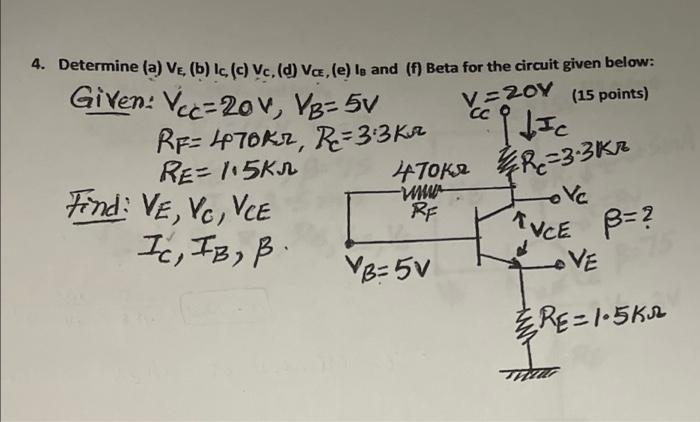 4. Determine (a) VE, (b) IC, (c) VC, (d) VCE, (e) IB and (f) Beta for the circuit given below:
(15 points)
Given: VCC=20V, VB=5V
RF=470KΩ, RC=3.3KΩ
RE=1.5KΩ
Find: VE, VC, VCE
IC, IB, β.
V=20V
CC
IC
RC=3.3KΩ
470KΩ
RF
VC
VCE
β=?
VB=5V
VE
RE=1.5KΩ